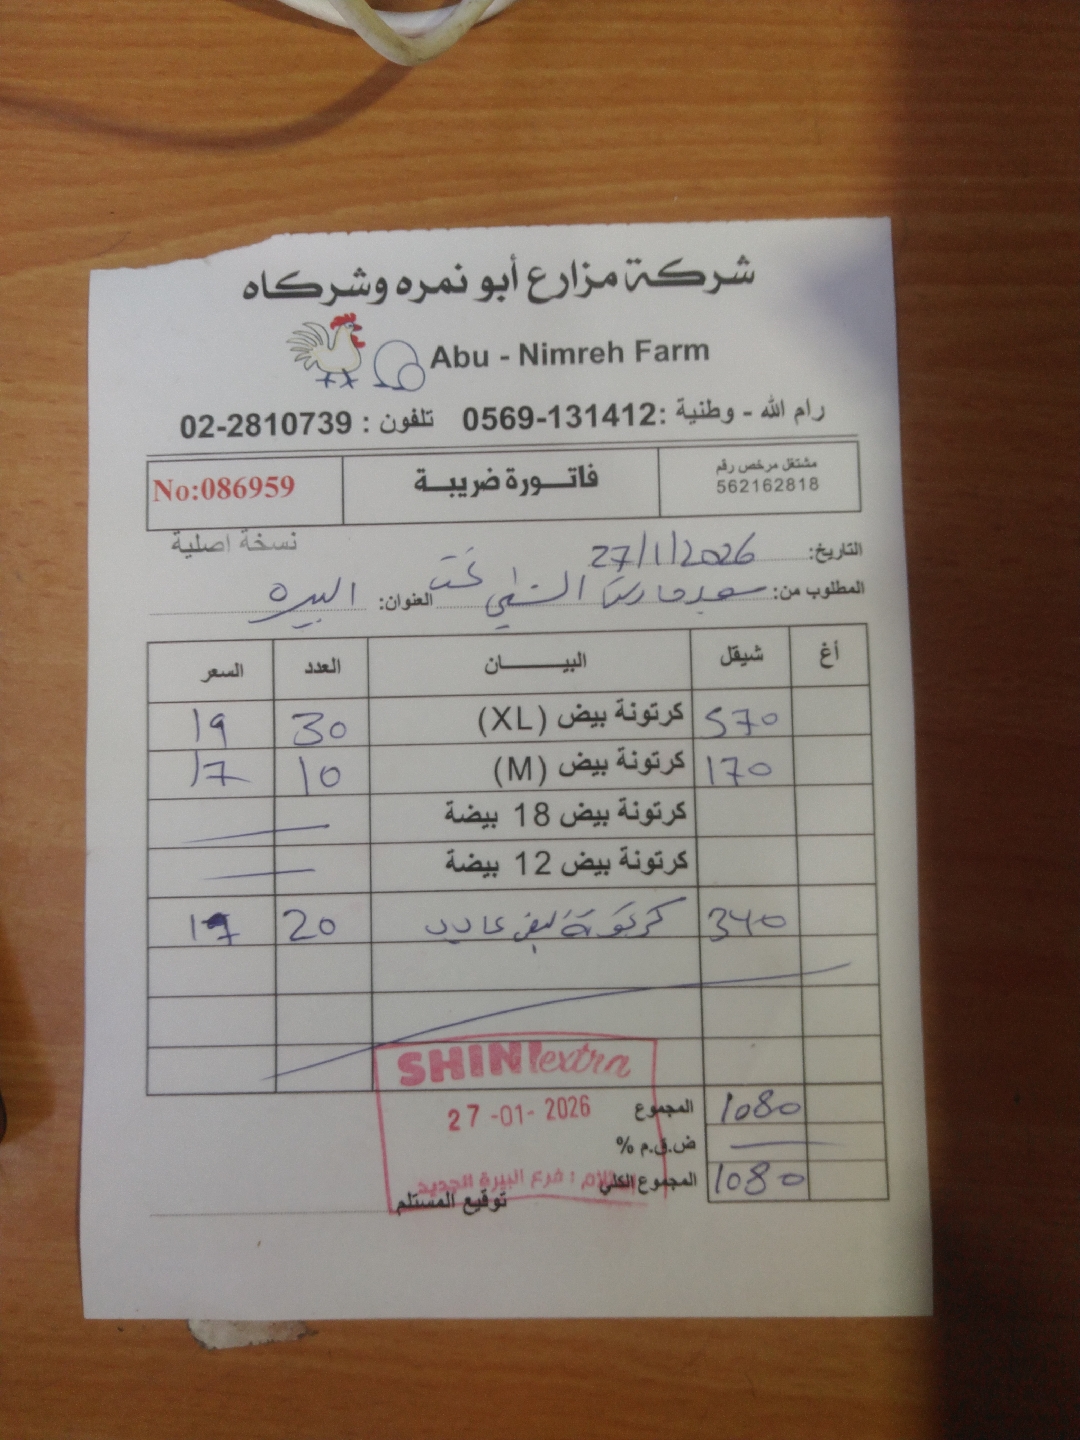 شركة مزارع أبو نمره وشركاه
Abu - Nimreh Farm
رام الله - وطنية : 0569-131412 تلفون : 02-2810739
مشتغل مرخص رقم
562162818
فاتورة ضريبة
No:086959
نسخة اصلية
التاريخ: 27/1/2026
المطلوب من: العنوان: البيره
أغ شيقل البيــــــان العدد السعر
570 كرتونة بيض (XL) 30 19
170 كرتونة بيض (M) 10 17
كرتونة بيض 18 بيضة
كرتونة بيض 12 بيضة
340 كرتونة بيض 20 17
SHINI extra
27-01-2026
المجموع 1080
ض.ق.م %
المجموع الكلي 1080
فرع البيرة الجديد
توقيع المستلم